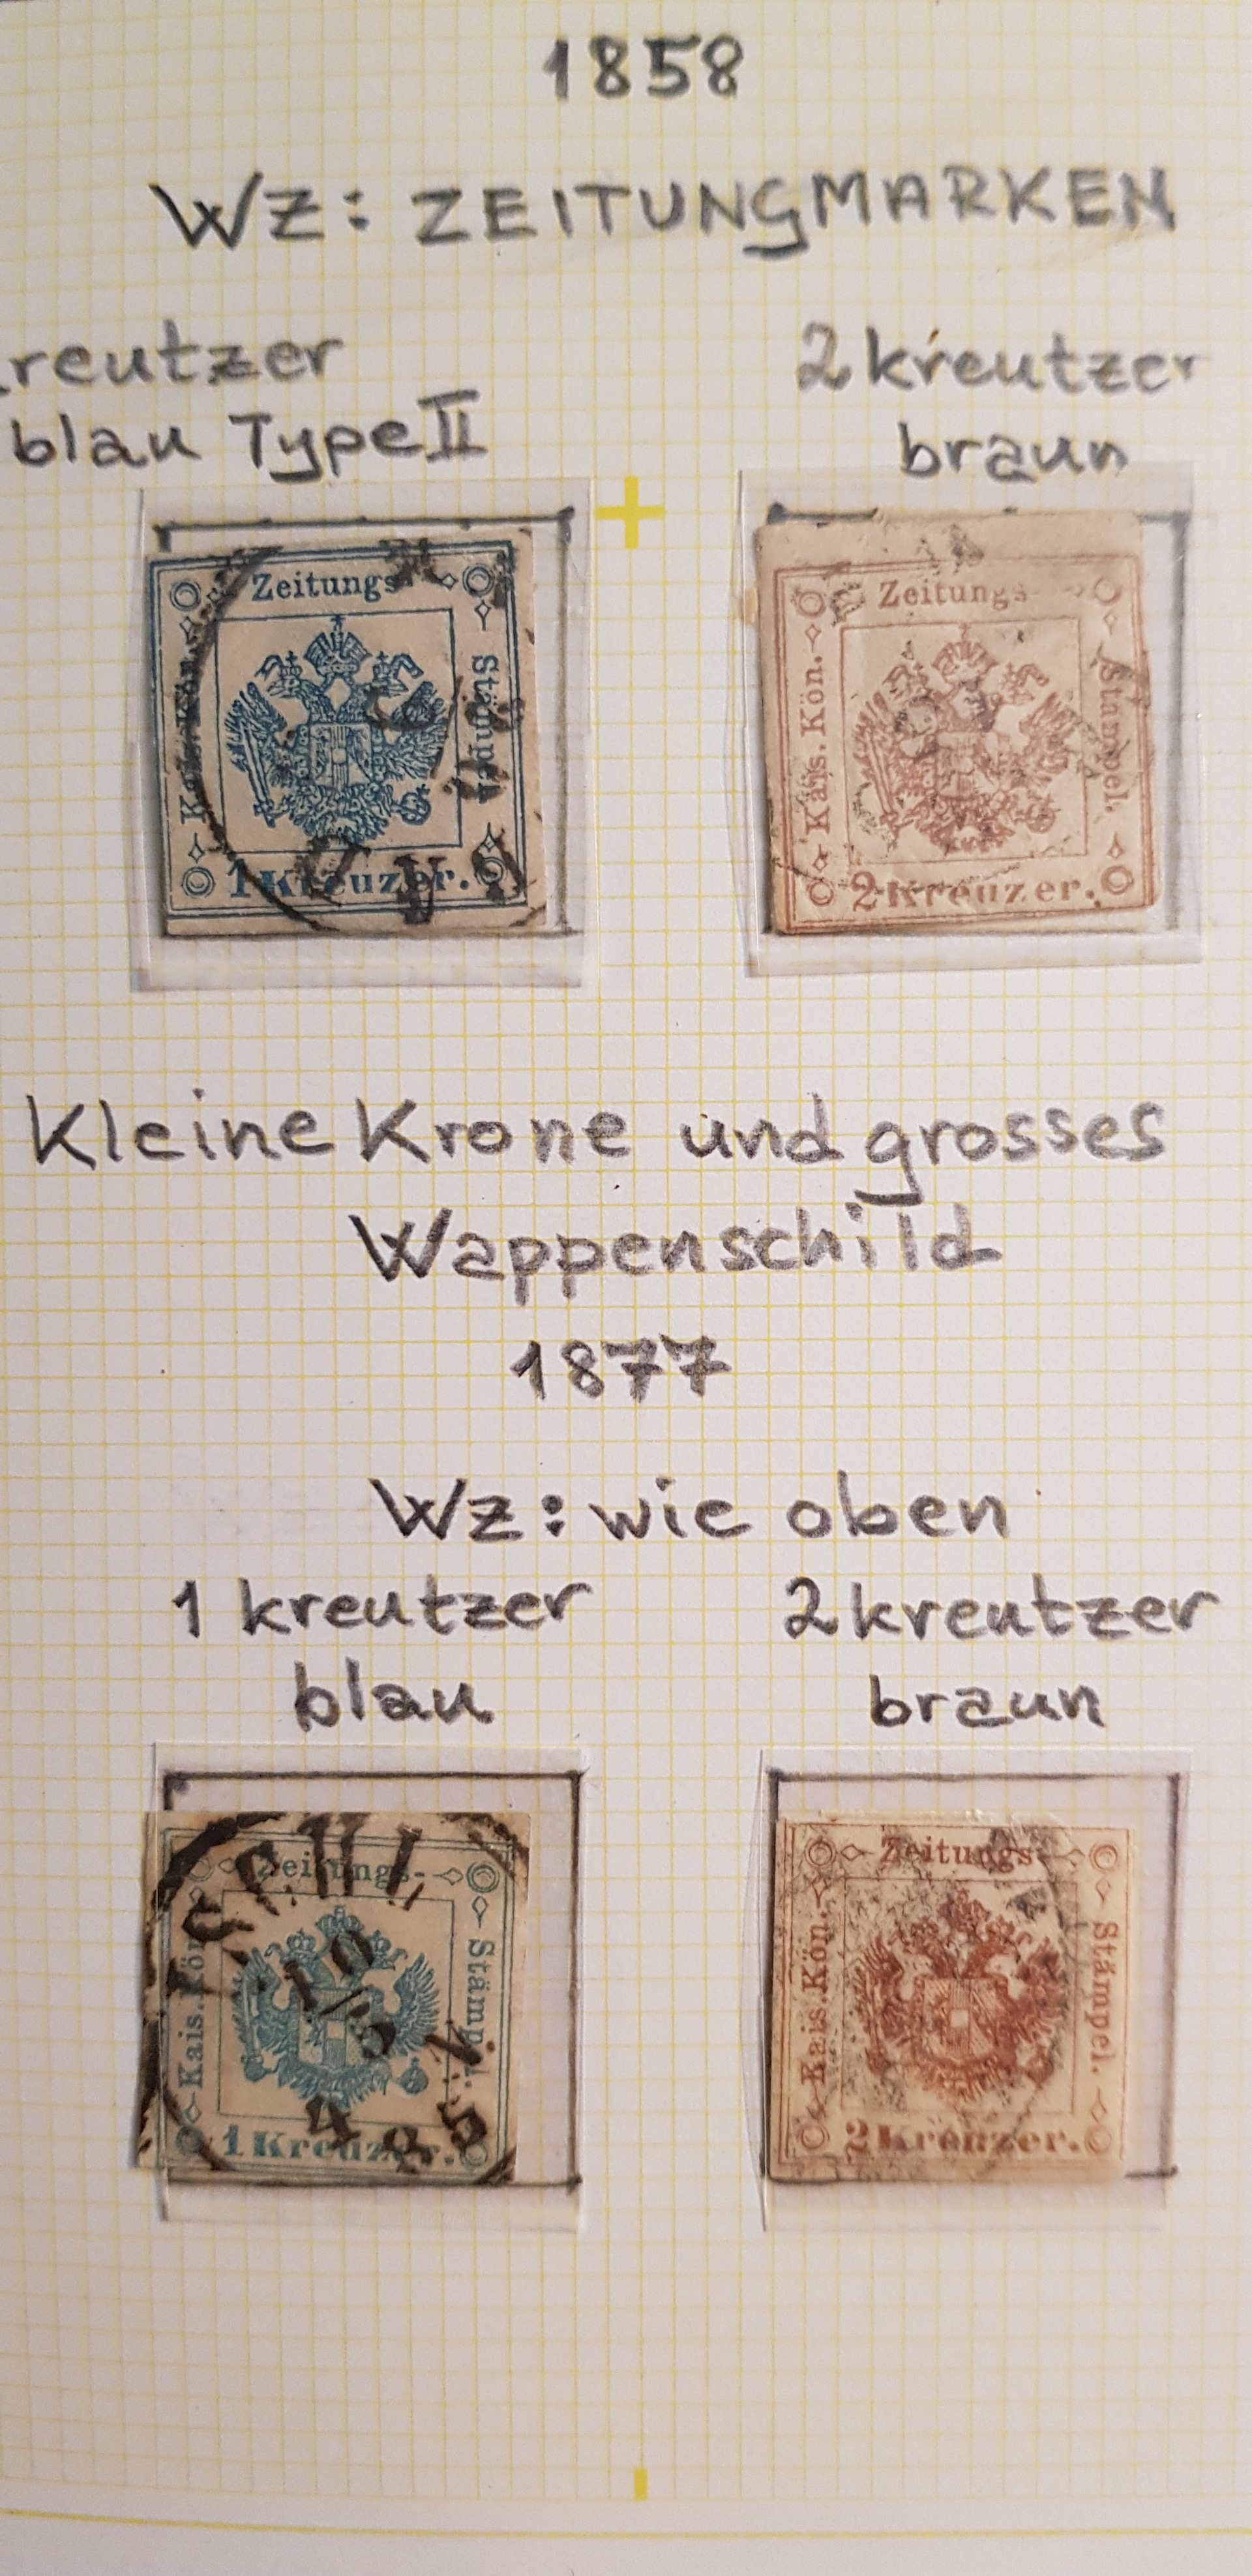 1858
WZ: ZEITUNGMARKEN
reutzer
blau Type II
2 kreutzer
braun
Zeitungs-
Kais. Kön.
Stämpel
1 Kreuzer.
Zeitungs-
Kais. Kön.
Stämpel.
2 Kreuzer.
Kleine Krone und grosses
Wappenschild
1877
WZ: wie oben
1 kreutzer
blau
2 kreutzer
braun
Zeitungs-
Kais. Kön.
Stämpel.
1 Kreuzer.
19/5
Zeitungs-
Kais. Kön.
Stämpel.
2 Kreuzer.